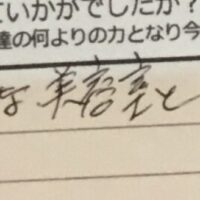 ていかがでしたか?
達の何よりの力となり今
な美容室と